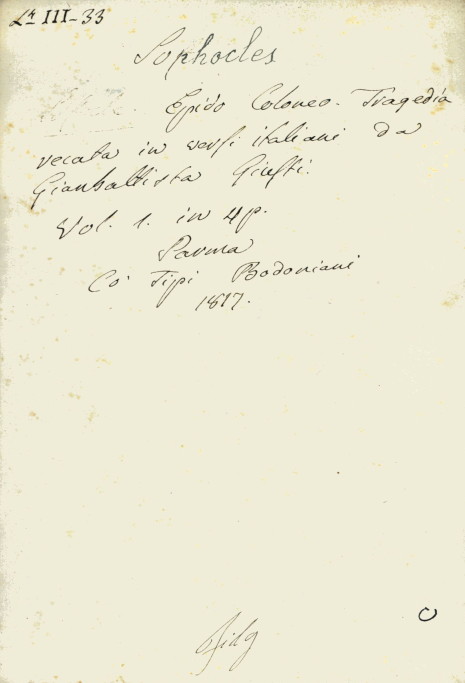 Lr III-33
Sophocles
Epido Coloneo. Tragedia
recata in versi italiani da
Gianbattista Giusti.
Vol. 1. in 4p.
Parma
Co' Tipi Bodoniani
1817.